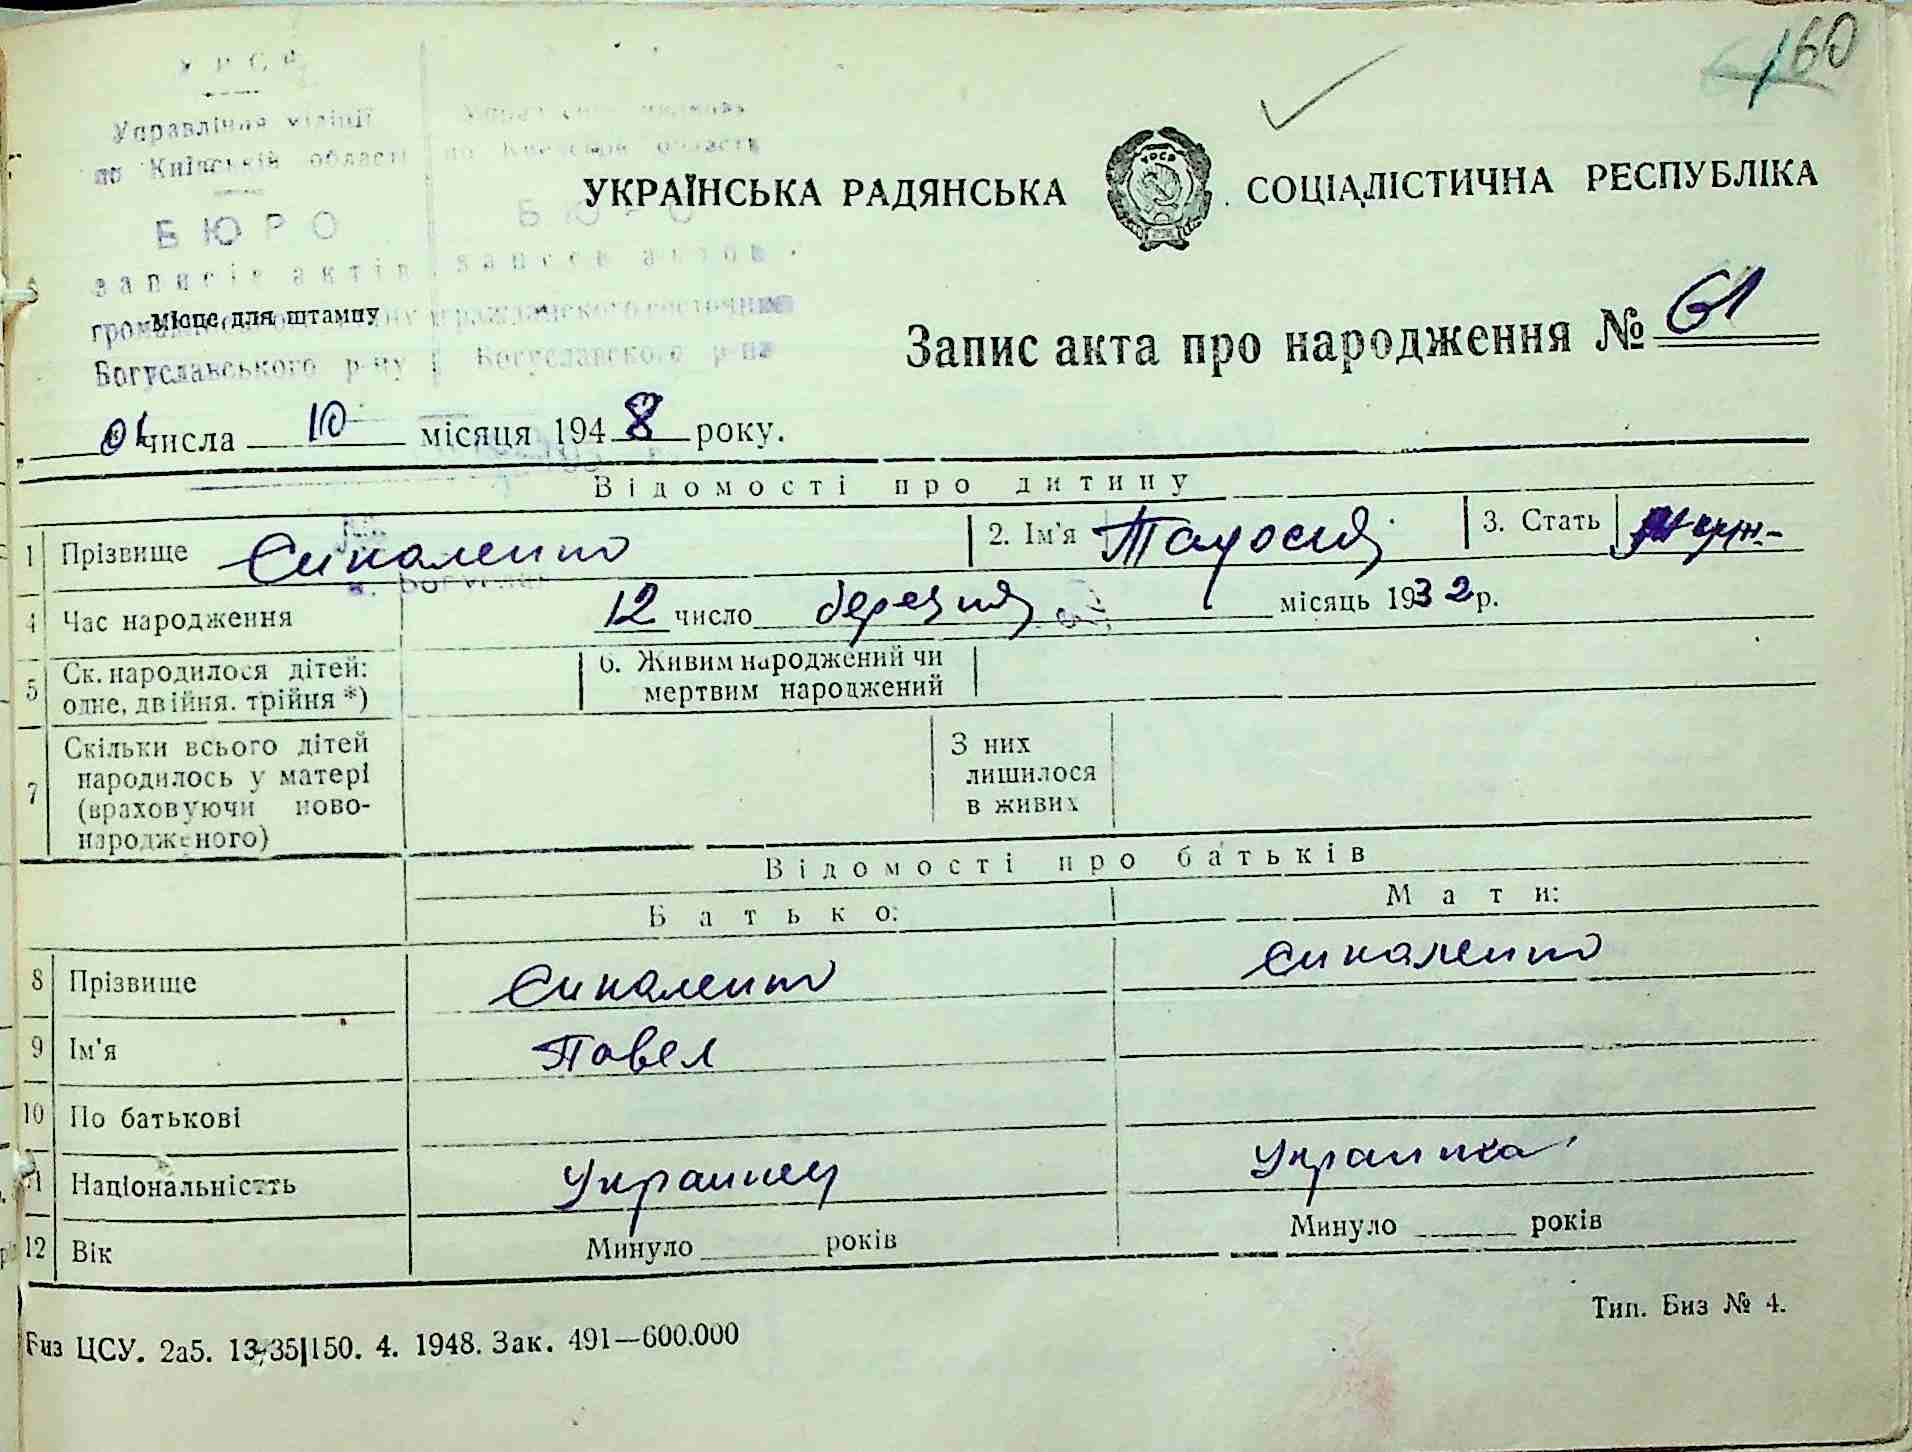 160
У Р С Р
Управління міліції
по Київській області по Киевской области
БЮРО БЮРО
записів актів записи актов
громадянського стану гражданского состояния
Місце для штампу
Богуславського р-ну Богуславского р-на
УКРАЇНСЬКА РАДЯНСЬКА СОЦІАЛІСТИЧНА РЕСПУБЛІКА
Запис акта про народження № 61
„ 01 числа 10 місяця 1948 року.
Відомості про дитину
1 Прізвище 2. Ім'я 3. Стать
4 Час народження 12 число березня місяць 1932 р.
5 Ск. народилося дітей: 6. Живим народжений чи
одне, двійня. трійня *) мертвим народжений
7 Скільки всього дітей З них
народилось у матері лишилося
(враховуючи ново- в живих
народженого)
Відомості про батьків
Батько: Мати:
8 Прізвище
9 Ім'я Павел
10 По батькові
11 Національністть Украинец Украинка
12 Вік Минуло років Минуло років
Биз ЦСУ. 2а5. 13/35|150. 4. 1948. Зак. 491—600.000
Тип. Биз № 4.